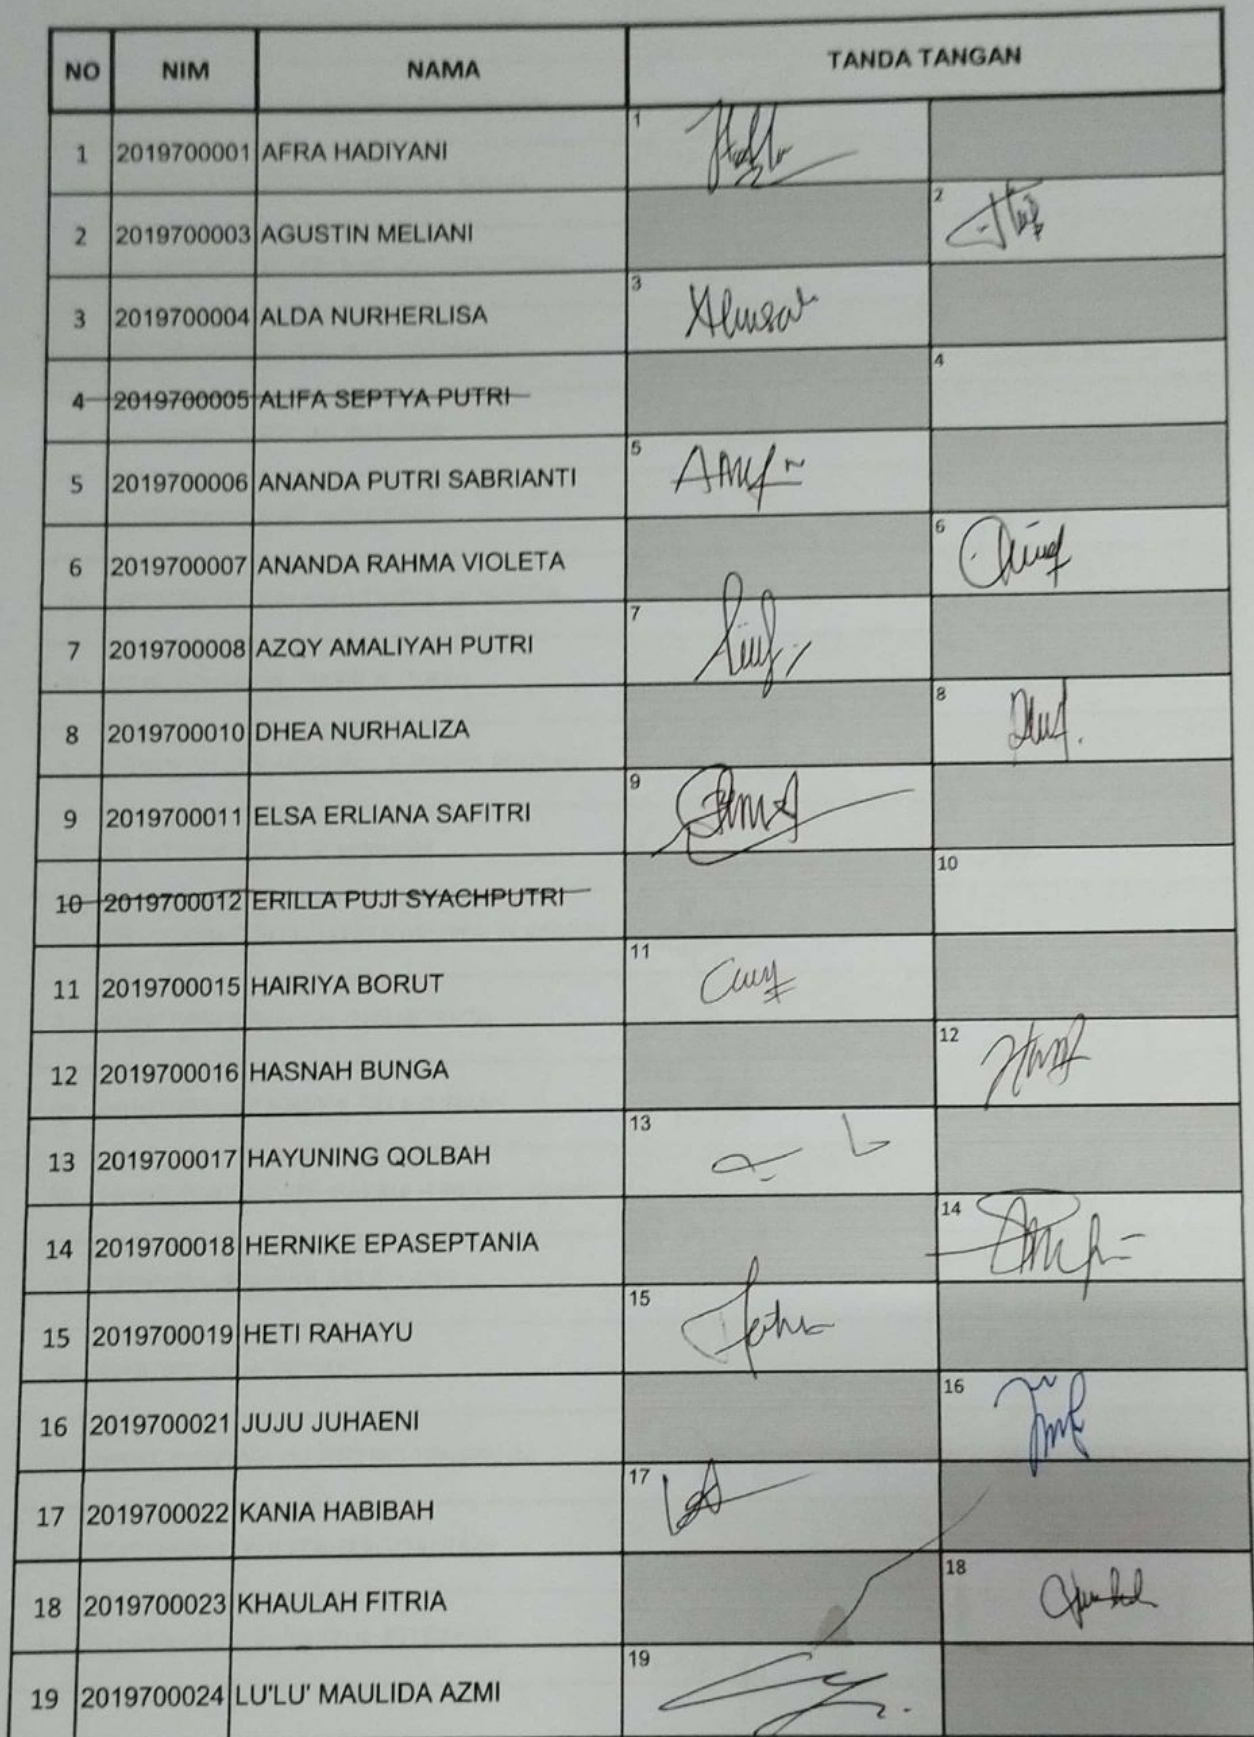 NO NIM NAMA TANDA TANGAN
1 2019700001 AFRA HADIYANI 1
2 2019700003 AGUSTIN MELIANI 2
3 2019700004 ALDA NURHERLISA 3
4 2019700005 ALIFA SEPTYA PUTRI 4
5 2019700006 ANANDA PUTRI SABRIANTI 5
6 2019700007 ANANDA RAHMA VIOLETA 6
7 2019700008 AZQY AMALIYAH PUTRI 7
8 2019700010 DHEA NURHALIZA 8
9 2019700011 ELSA ERLIANA SAFITRI 9
10 2019700012 ERILLA PUJI SYACHPUTRI 10
11 2019700015 HAIRIYA BORUT 11
12 2019700016 HASNAH BUNGA 12
13 2019700017 HAYUNING QOLBAH 13
14 2019700018 HERNIKE EPASEPTANIA 14
15 2019700019 HETI RAHAYU 15
16 2019700021 JUJU JUHAENI 16
17 2019700022 KANIA HABIBAH 17
18 2019700023 KHAULAH FITRIA 18
19 2019700024 LU'LU' MAULIDA AZMI 19